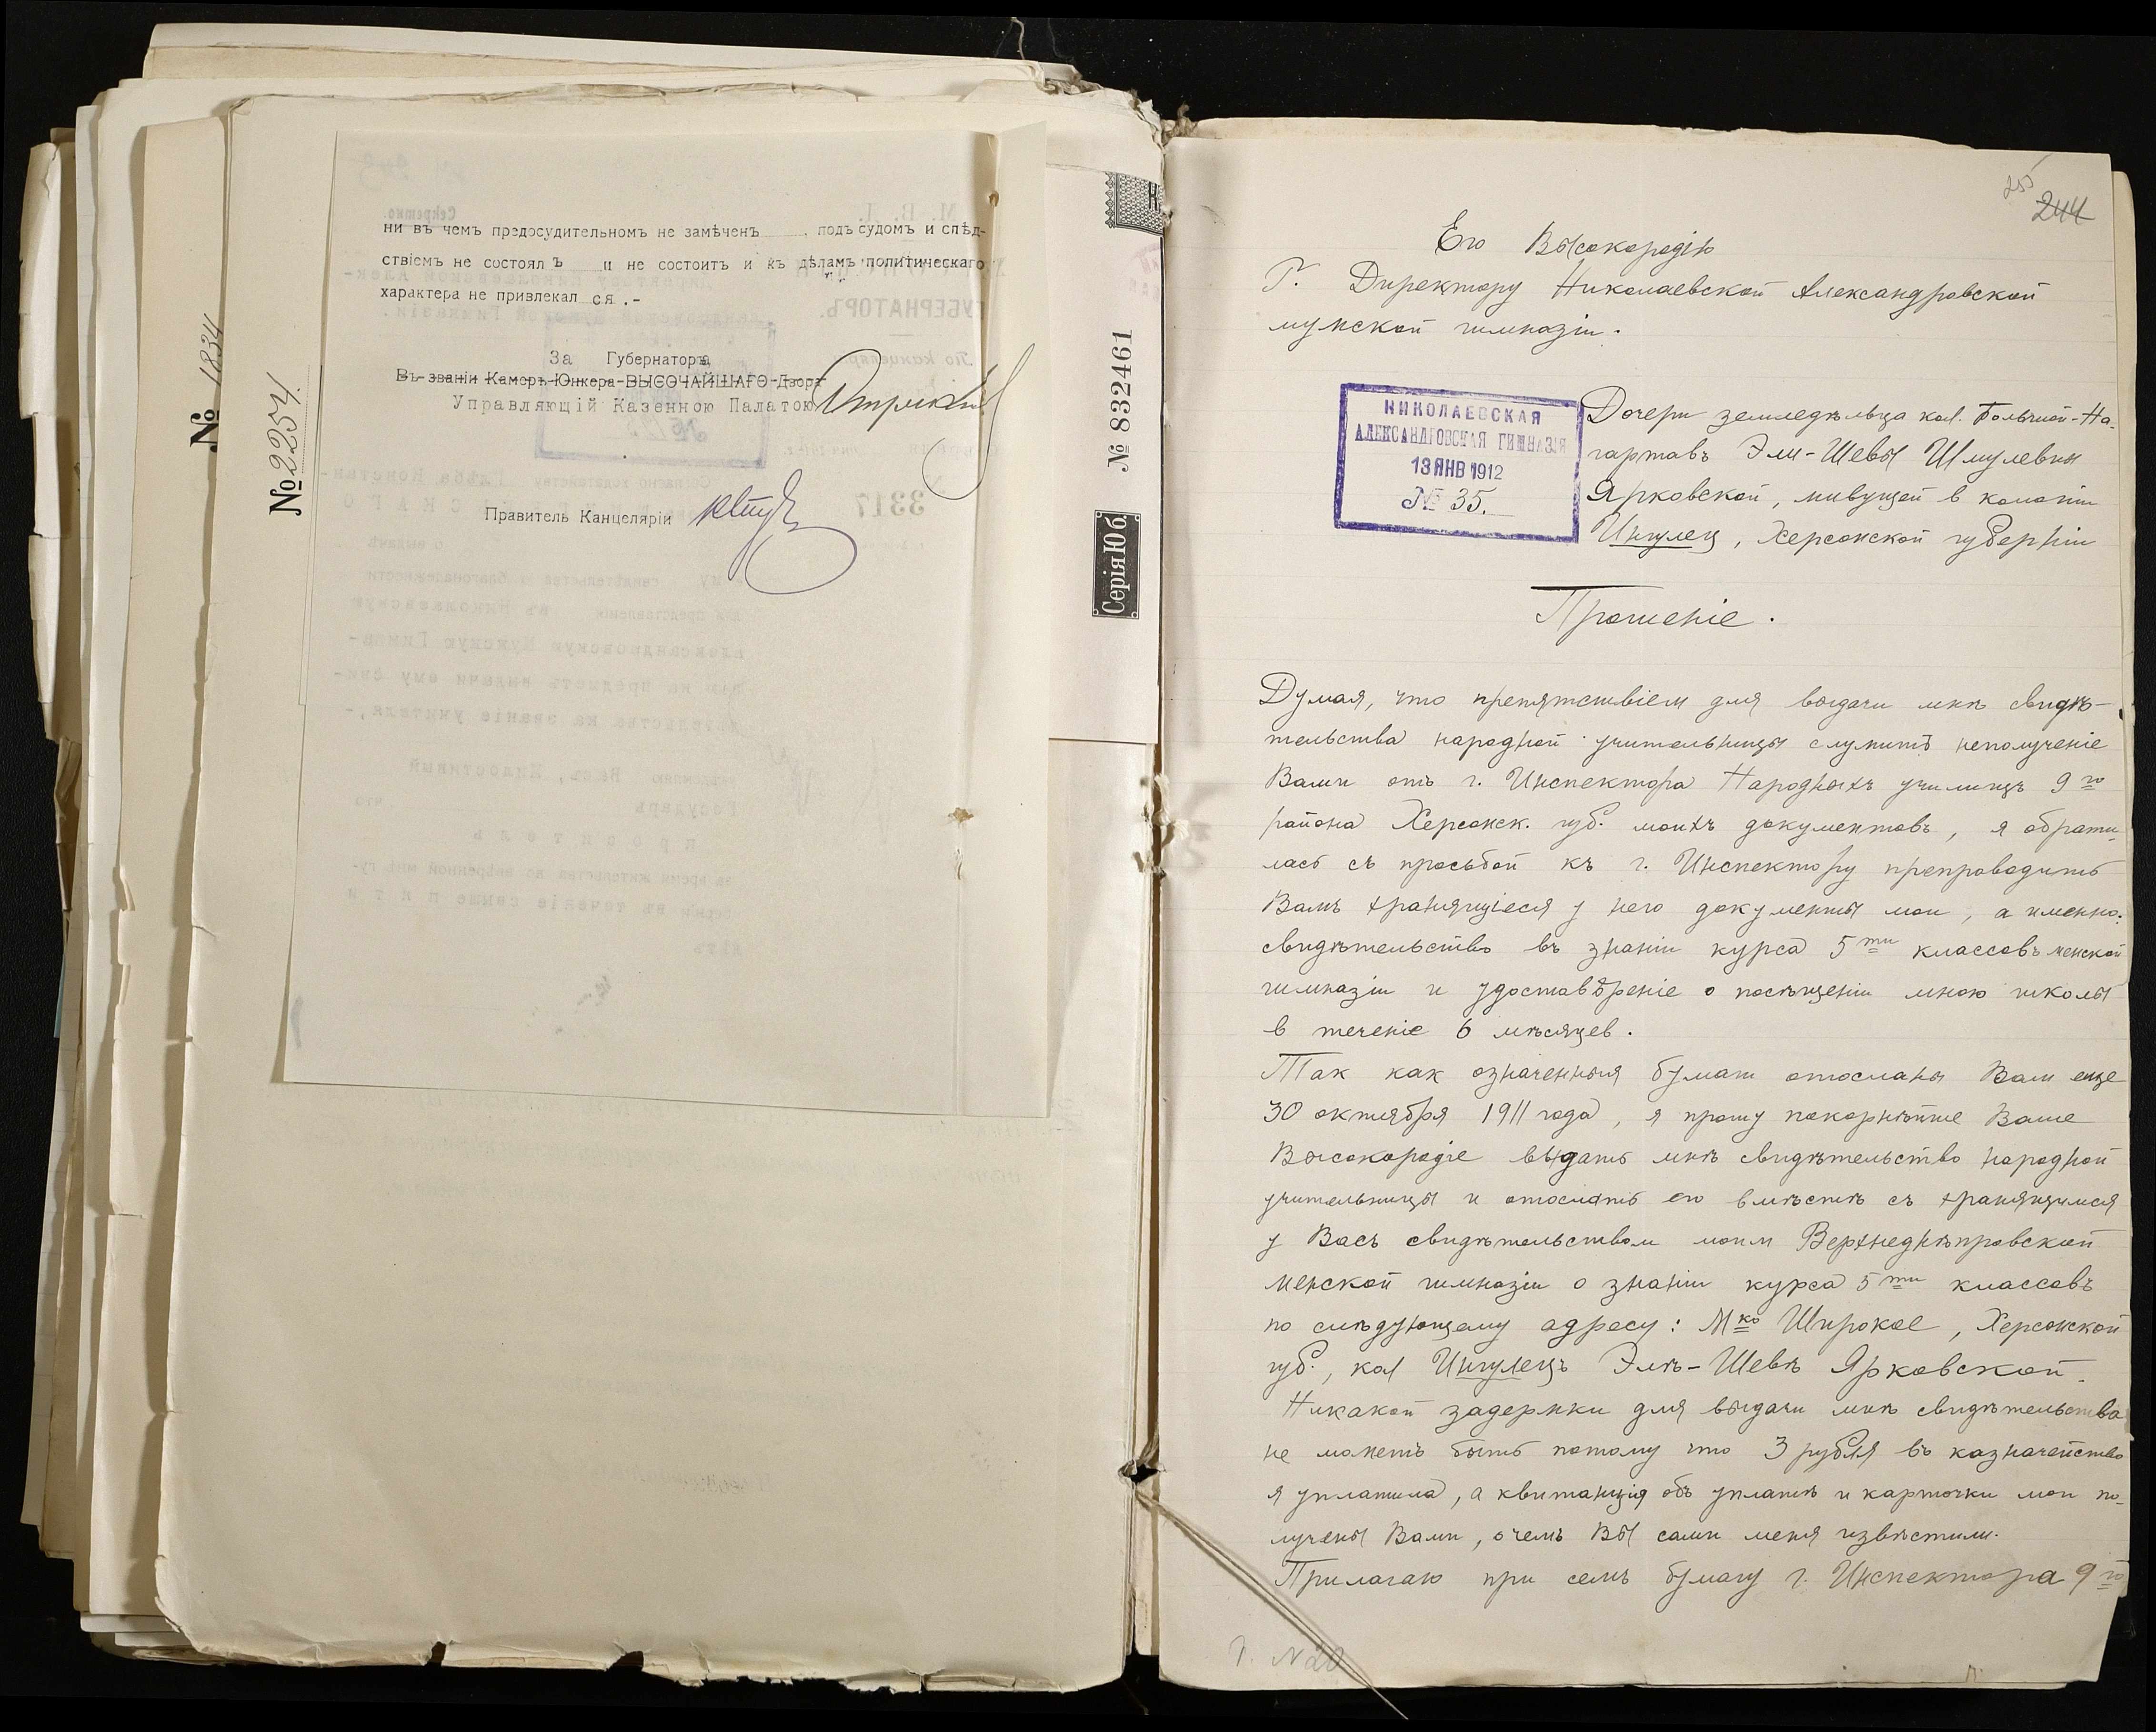 ни въ чемъ предосудительномъ не замѣченъ , подъ судомъ и слѣд-
ствіемъ не состоялъ и не состоитъ и къ дѣламъ политическаго
характера не привлекался.-
За Губернатора
Въ званіи Камеръ-Юнкера ВЫСОЧАЙШАГО Двора
Управляющій Казенною Палатою
Правитель Канцеляріи
№ 1834
№2254.
№ 832461
Серія Юб.
255
244
Его Высокородію
Г. Директору Николаевской Александровской
мужской гимназіи.
НИКОЛАЕВСКАЯ
АЛЕКСАНДРОВСКАЯ ГИМНАЗІЯ
13 ЯНВ 1912
№ 35.
Дочери земледѣльца кол. Большой-На-
гартавъ Эли-Шевы Шмулевны
Ярковской, живущей в колоніи
Ингулец, Херсонской губерніи
Прошеніе.
Думая, что препятствіем для выдачи мнѣ свидѣ-
тельства народной учительницы служитъ неполученіе
Вами отъ г. Инспектора Народныхъ училищъ 9го
района Херсонск. губ. моихъ документовъ, я обрати-
лась съ просьбой къ г. Инспектору препроводить
Вамъ хранящіеся у него документы мои, а именно:
свидѣтельство въ знаніи курса 5ти классовъ женской
гимназіи и удостовѣреніе о посѣщеніи мною школы
в теченіе 6 мѣсяцев.
Так как означенныя бумаги отосланы Вам еще
30 октября 1911 года, я прошу покорнѣйше Ваше
Высокородіе выдать мнѣ свидѣтельство народной
учительницы и отослать его вмѣстѣ съ хранящимся
у Васъ свидѣтельством моим Верхнеднѣпровской
женской гимназіи о знаніи курса 5ти классовъ
по слѣдующему адресу: Мко Широкое, Херсонской
губ., кол Ингулецъ Элѣ-Шевѣ Ярковской.
Никакой задержки для выдачи мнѣ свидѣтельства
не можетъ быть потому что 3 рубля въ казначейство
я уплатила, а квитанція объ уплатѣ и карточки мои по-
лучены Вами, о чемъ Вы сами меня извѣстили.
Прилагаю при семъ бумагу г. Инспектора 9го
N 20